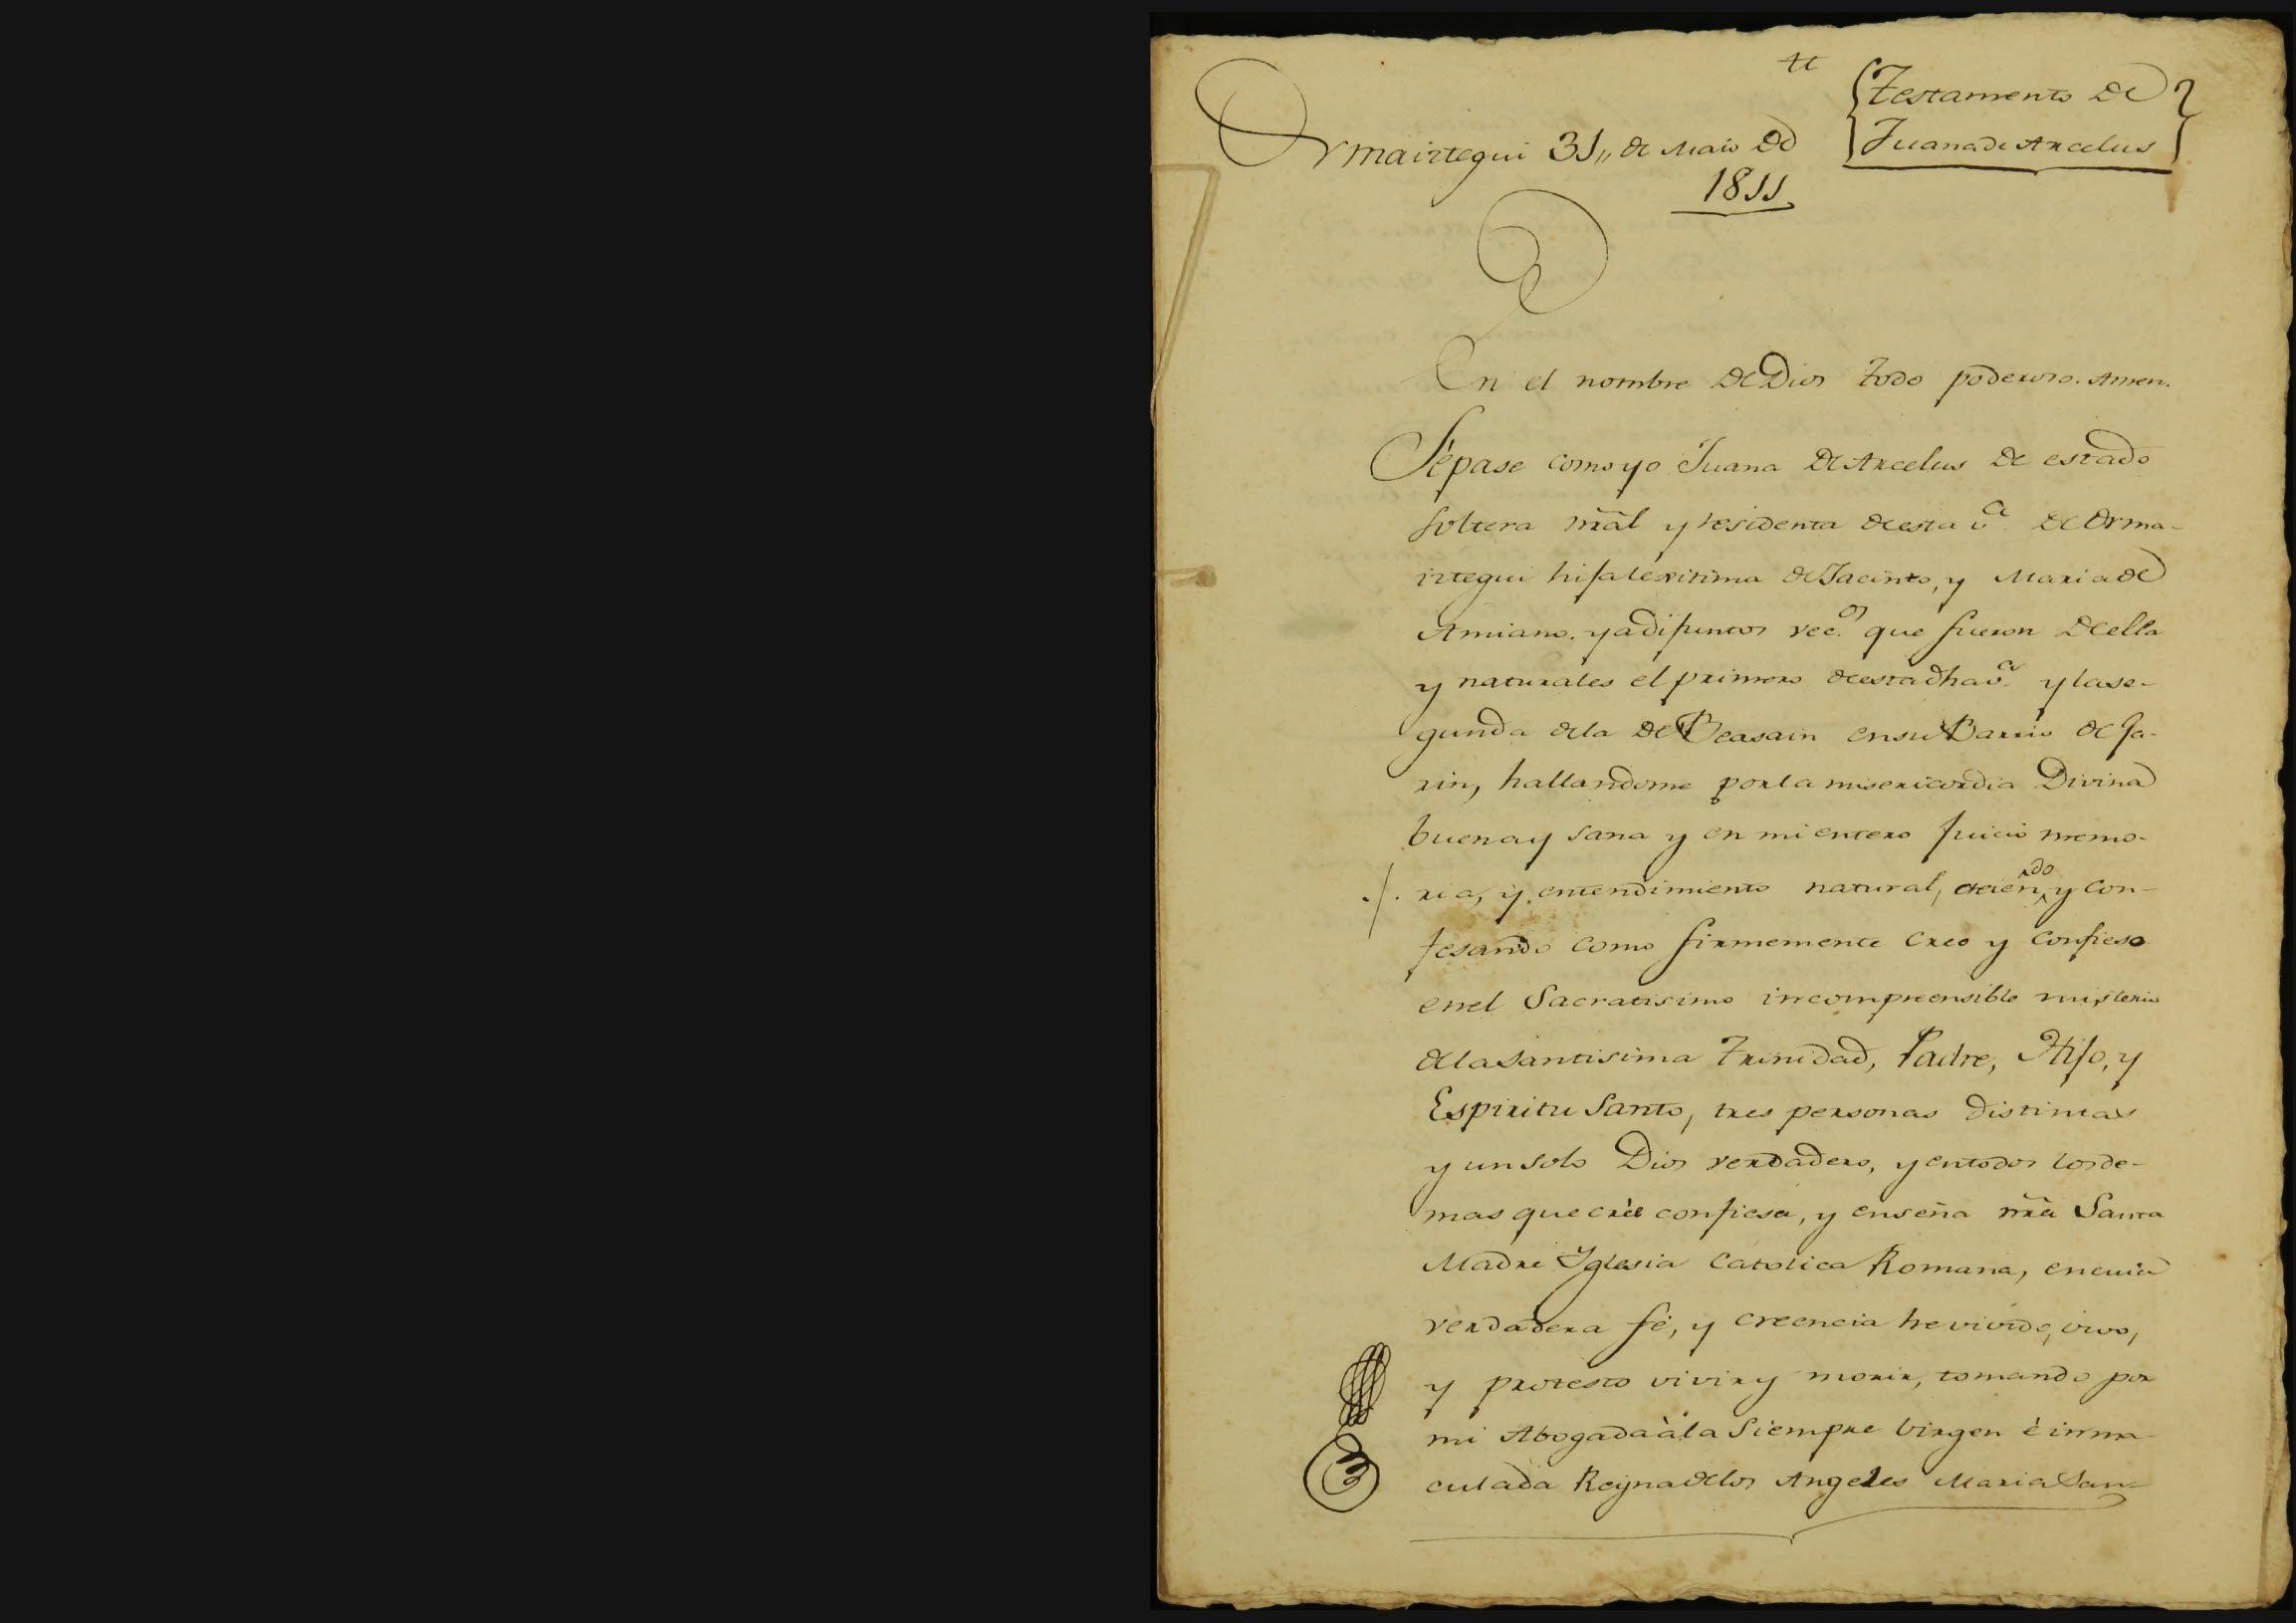 Testamento de
Juana de Arcelus
Ormaiztegui 31,, de Maio de
1811
En el nombre de Dios todo poderoso. Amen.
Sépase como yo Juana de Arcelus de estado
soltera nrãl y residenta de esta v.ª de Orma-
iztegui hija lexitima de Jacinto, y Maria de
Amiano. ya difuntos vec.os que fueron de ella
y naturales el primero de esta dha v.ª y la se-
gunda de la de Beasain en su Barrio de Ja-
rin, hallandome por la misericordia Divina
buena y sana y en mi entero juicio memo-
./. ria, y entendimiento natural, creiendo y con-
fesando como firmemente creo y confieso
en el Sacratisimo incompreensible misterio
de la Santisima Trinidad, Padre, Hijo, y
Espiritu Santo, tres personas distintas
y un solo Dios verdadero, y en todos los de-
mas que crèe confiesa, y enseña nrã Santa
Madre Yglesia Catolica Romana, en cuia
verdadera fé, y creencia he vivido, vivo,
y protesto vivir y morir, tomando por
mi Abogada à la Siempre birgen è inma-
culada Reyna de los Angeles Maria San-